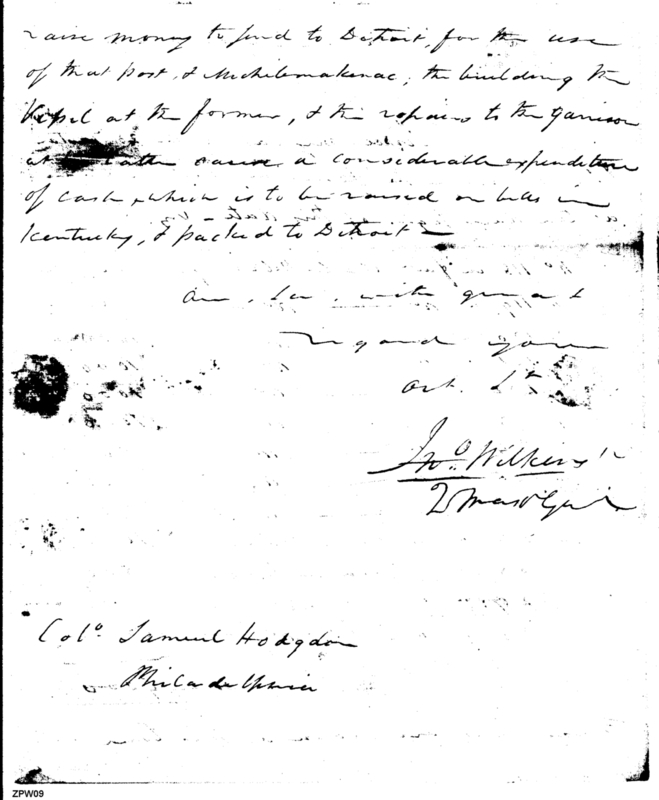 raise money to send to Detroit, for the use
of that post, & Michilemakenac, the building the
Vessel at the former, & the repairs to the Garrison
at the latter cause a considerable expenditure
of cash, which is to be raised on bills in
Kentucky, & packed to Detroit —
am, Sir, with great
regard your
Obt. St
Jno. Wilkins Jr
QMastr Genl
Colo. Samuel Hodgdon
Philadelphia
ZPW09